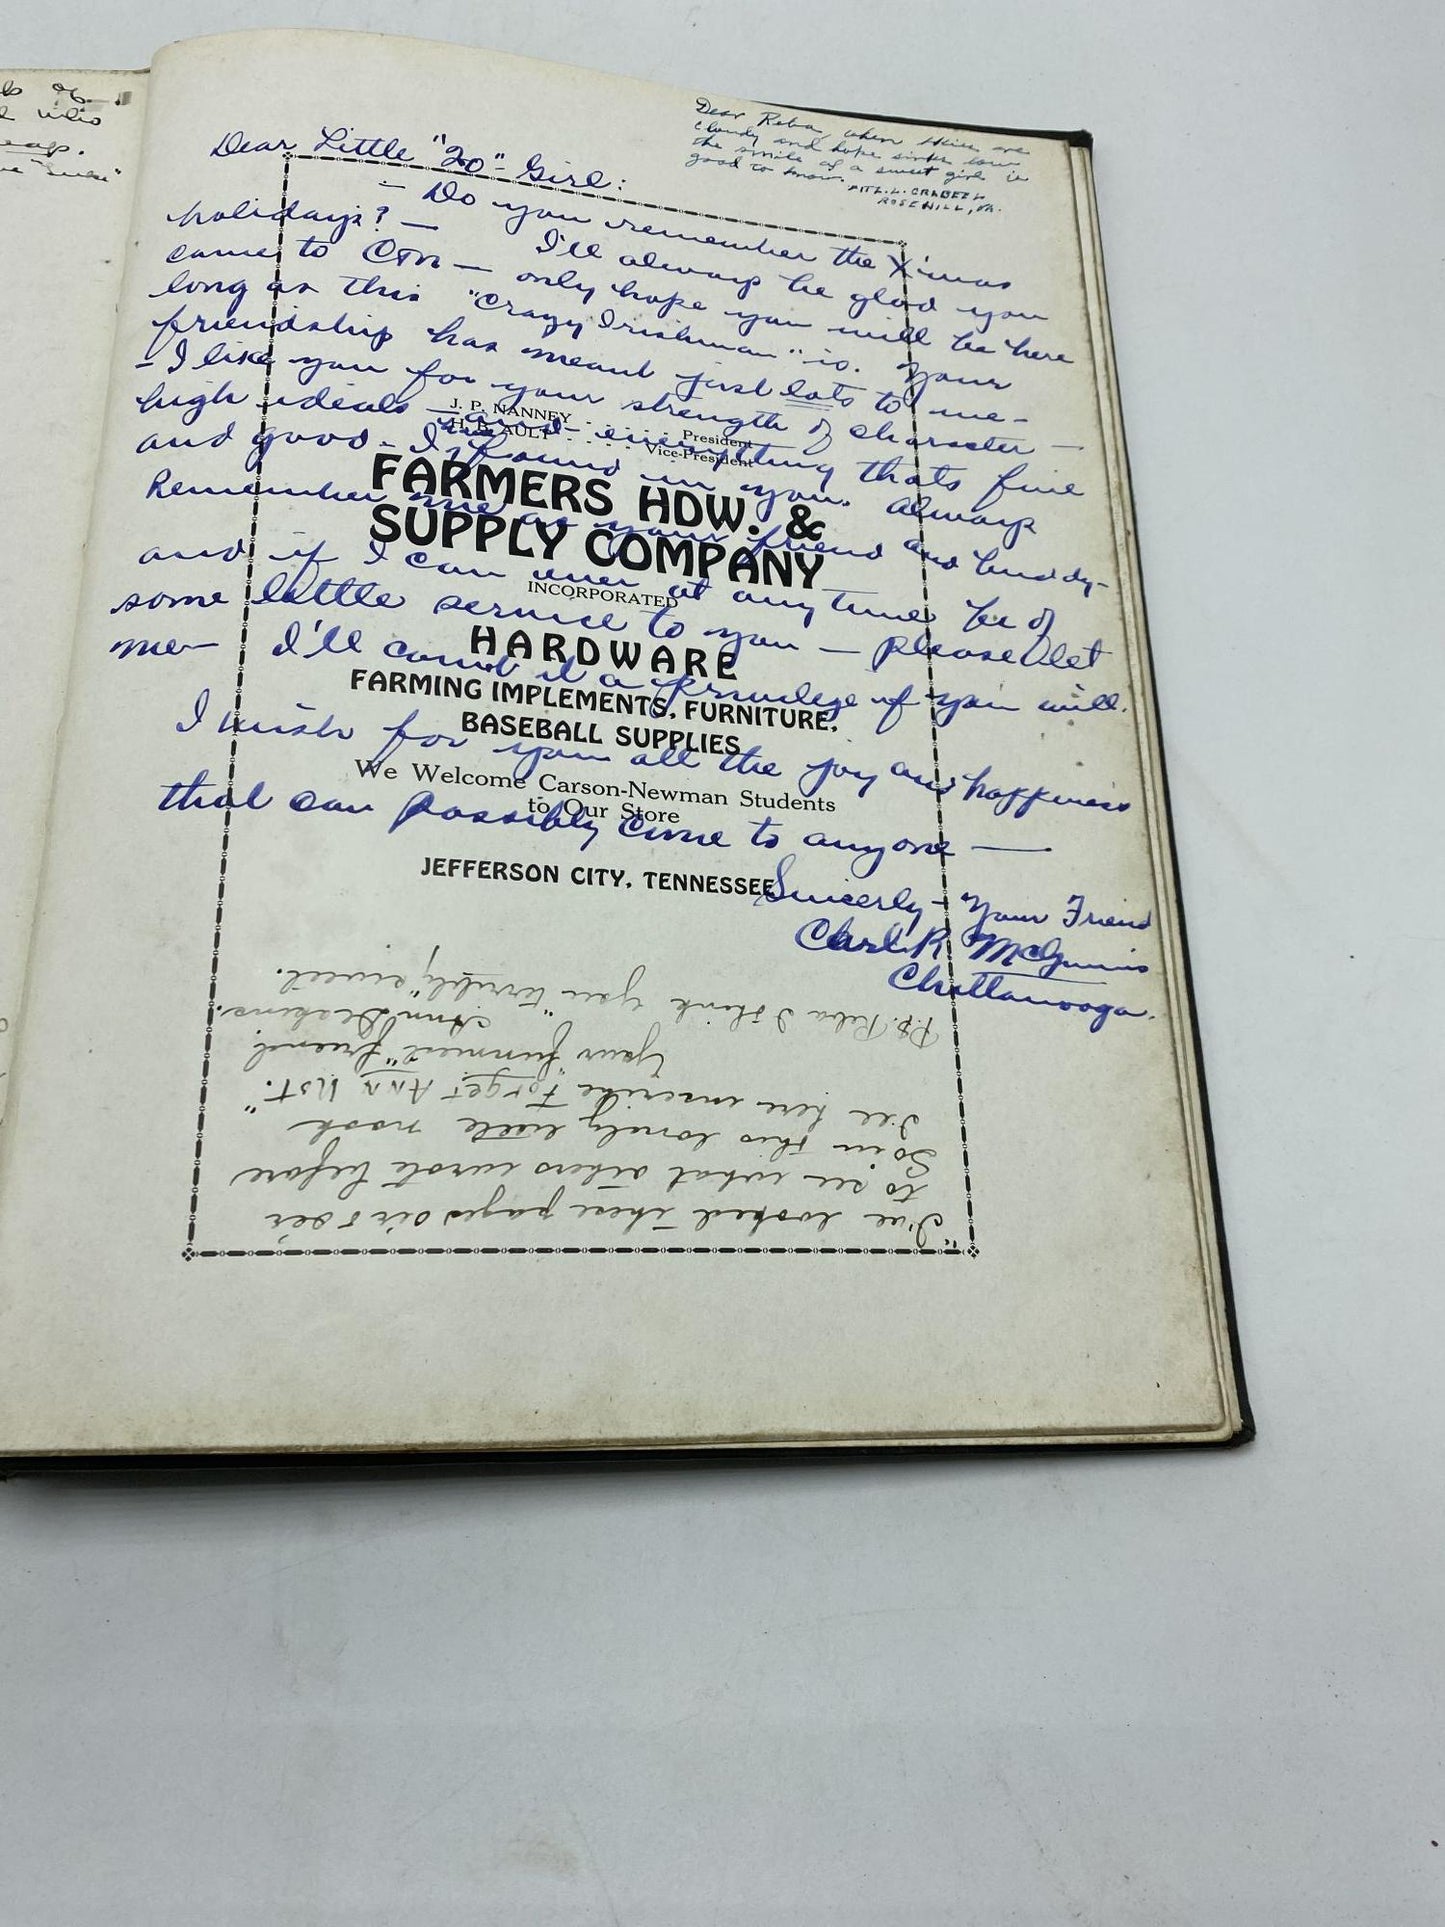 Dear Reba, when skies are
cloudy and hope sinks low
the smile of a sweet girl is
good to know.
FITZ. L. CRABEEL
ROSE HILL, VA.
Dear Little "20" Girl:
- Do you remember the X'mas
holidays? — I'll always be glad you
came to C-N — only hope you will be here
long as this "crazy Irishman" is. Your
friendship has meant just lots to me -
- I like you for your strength of character —
high ideals — and everything thats fine
and good - I've found in you. Always
Remember me as your friend and buddy -
and if I can ever at any time be of
some little service to you — please let
me — I'll count it a privilege if you will.
I wish for you all the joy and happiness
that can possibly come to anyone —
Sincerly - Your Friend
Carl R. McGinnis
Chattanooga.
J. P. NANNEY . . . . . . . President
H. B. AULT . . . . . Vice-President
FARMERS HDW. &
SUPPLY COMPANY
INCORPORATED
HARDWARE
FARMING IMPLEMENTS, FURNITURE,
BASEBALL SUPPLIES
We Welcome Carson-Newman Students
to Our Store
JEFFERSON CITY, TENNESSEE
"I've looked these pages o'er & o'er
to see what others wrote before
So in this lonely little nook
I'll here inscribe Forget Ann Not."
Your "funniest" friend
Ann Deakins.
P.S. Reba I think you "terribly" sweet.